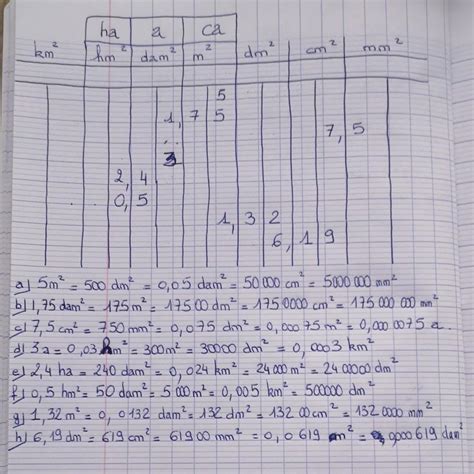 ha a ca
km² hm² dam² m² dm² cm² mm²
5
1,75
7,5
3
2,4
0,5
1,32
6,19
a) 5m² = 500 dm² = 0,05 dam² = 50 000 cm² = 5000 000 mm²
b) 1,75 dam² = 175 m² = 175 00 dm² = 175 0000 cm² = 175 000 000 mm²
c) 7,5 cm² = 750 mm² = 0,075 dm² = 0,000 75 m² = 0,000 0075 a.
d) 3a = 0,03 hm² = 300m² = 30000 dm² = 0,0003 km²
e) 2,4 ha = 240 dam² = 0,024 km² = 24 000 m² = 24 00000 dm²
f) 0,5 hm² = 50 dam² = 5 000 m² = 0,005 km² = 500000 dm²
g) 1,32 m² = 0,0132 dam² = 132 dm² = 132 00 cm² = 132 0000 mm²
h) 6,19 dm² = 619 cm² = 619 00 mm² = 0,0619 m² = 000619 dam²